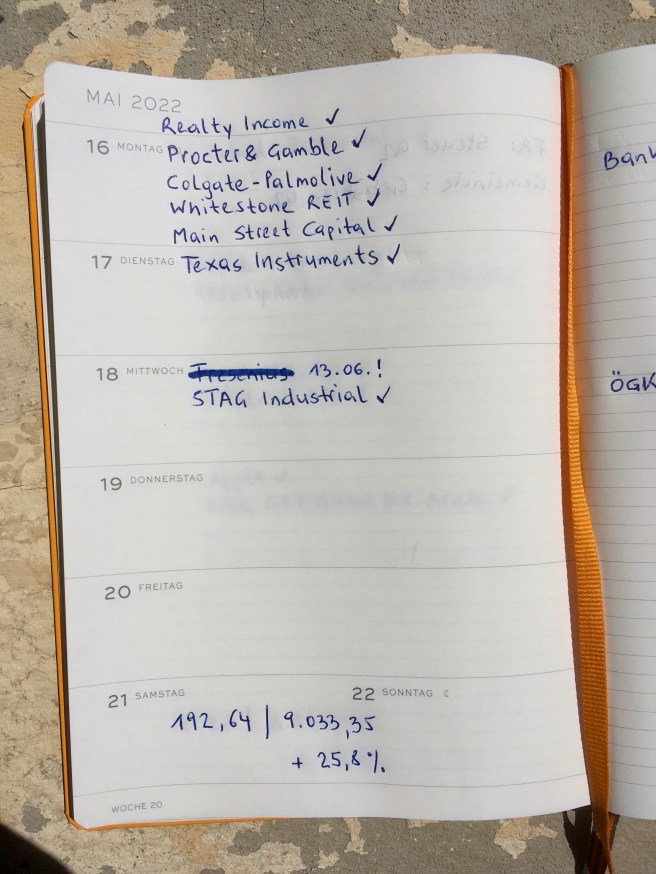 MAI 2022
Realty Income ✓
16 MONTAG Procter & Gamble ✓
Colgate-Palmolive ✓
Whitestone REIT ✓
Main Street Capital ✓
17 DIENSTAG Texas Instruments ✓
18 MITTWOCH Fresenius 13.06.!
STAG Industrial ✓
19 DONNERSTAG
20 FREITAG
21 SAMSTAG 22 SONNTAG ☾
192,64 | 9.033,35
+ 25,8%
WOCHE 20
Bank
ÖGK